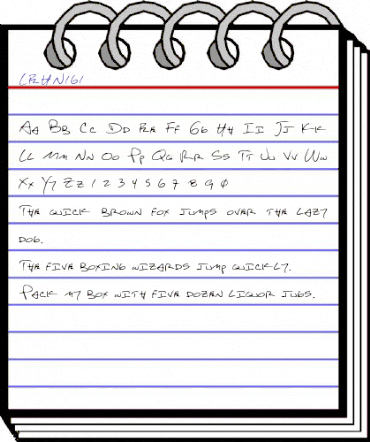 LEHN161
Aa Bb Cc Dd Ee Ff Gg Hh Ii Jj Kk
Ll Mm Nn Oo Pp Qq Rr Ss Tt Uu Vv Ww
Xx Yy Zz 1 2 3 4 5 6 7 8 9 0
The quick brown fox jumps over the lazy
dog.
The five boxing wizards jump quickly.
Pack my box with five dozen liquor jugs.